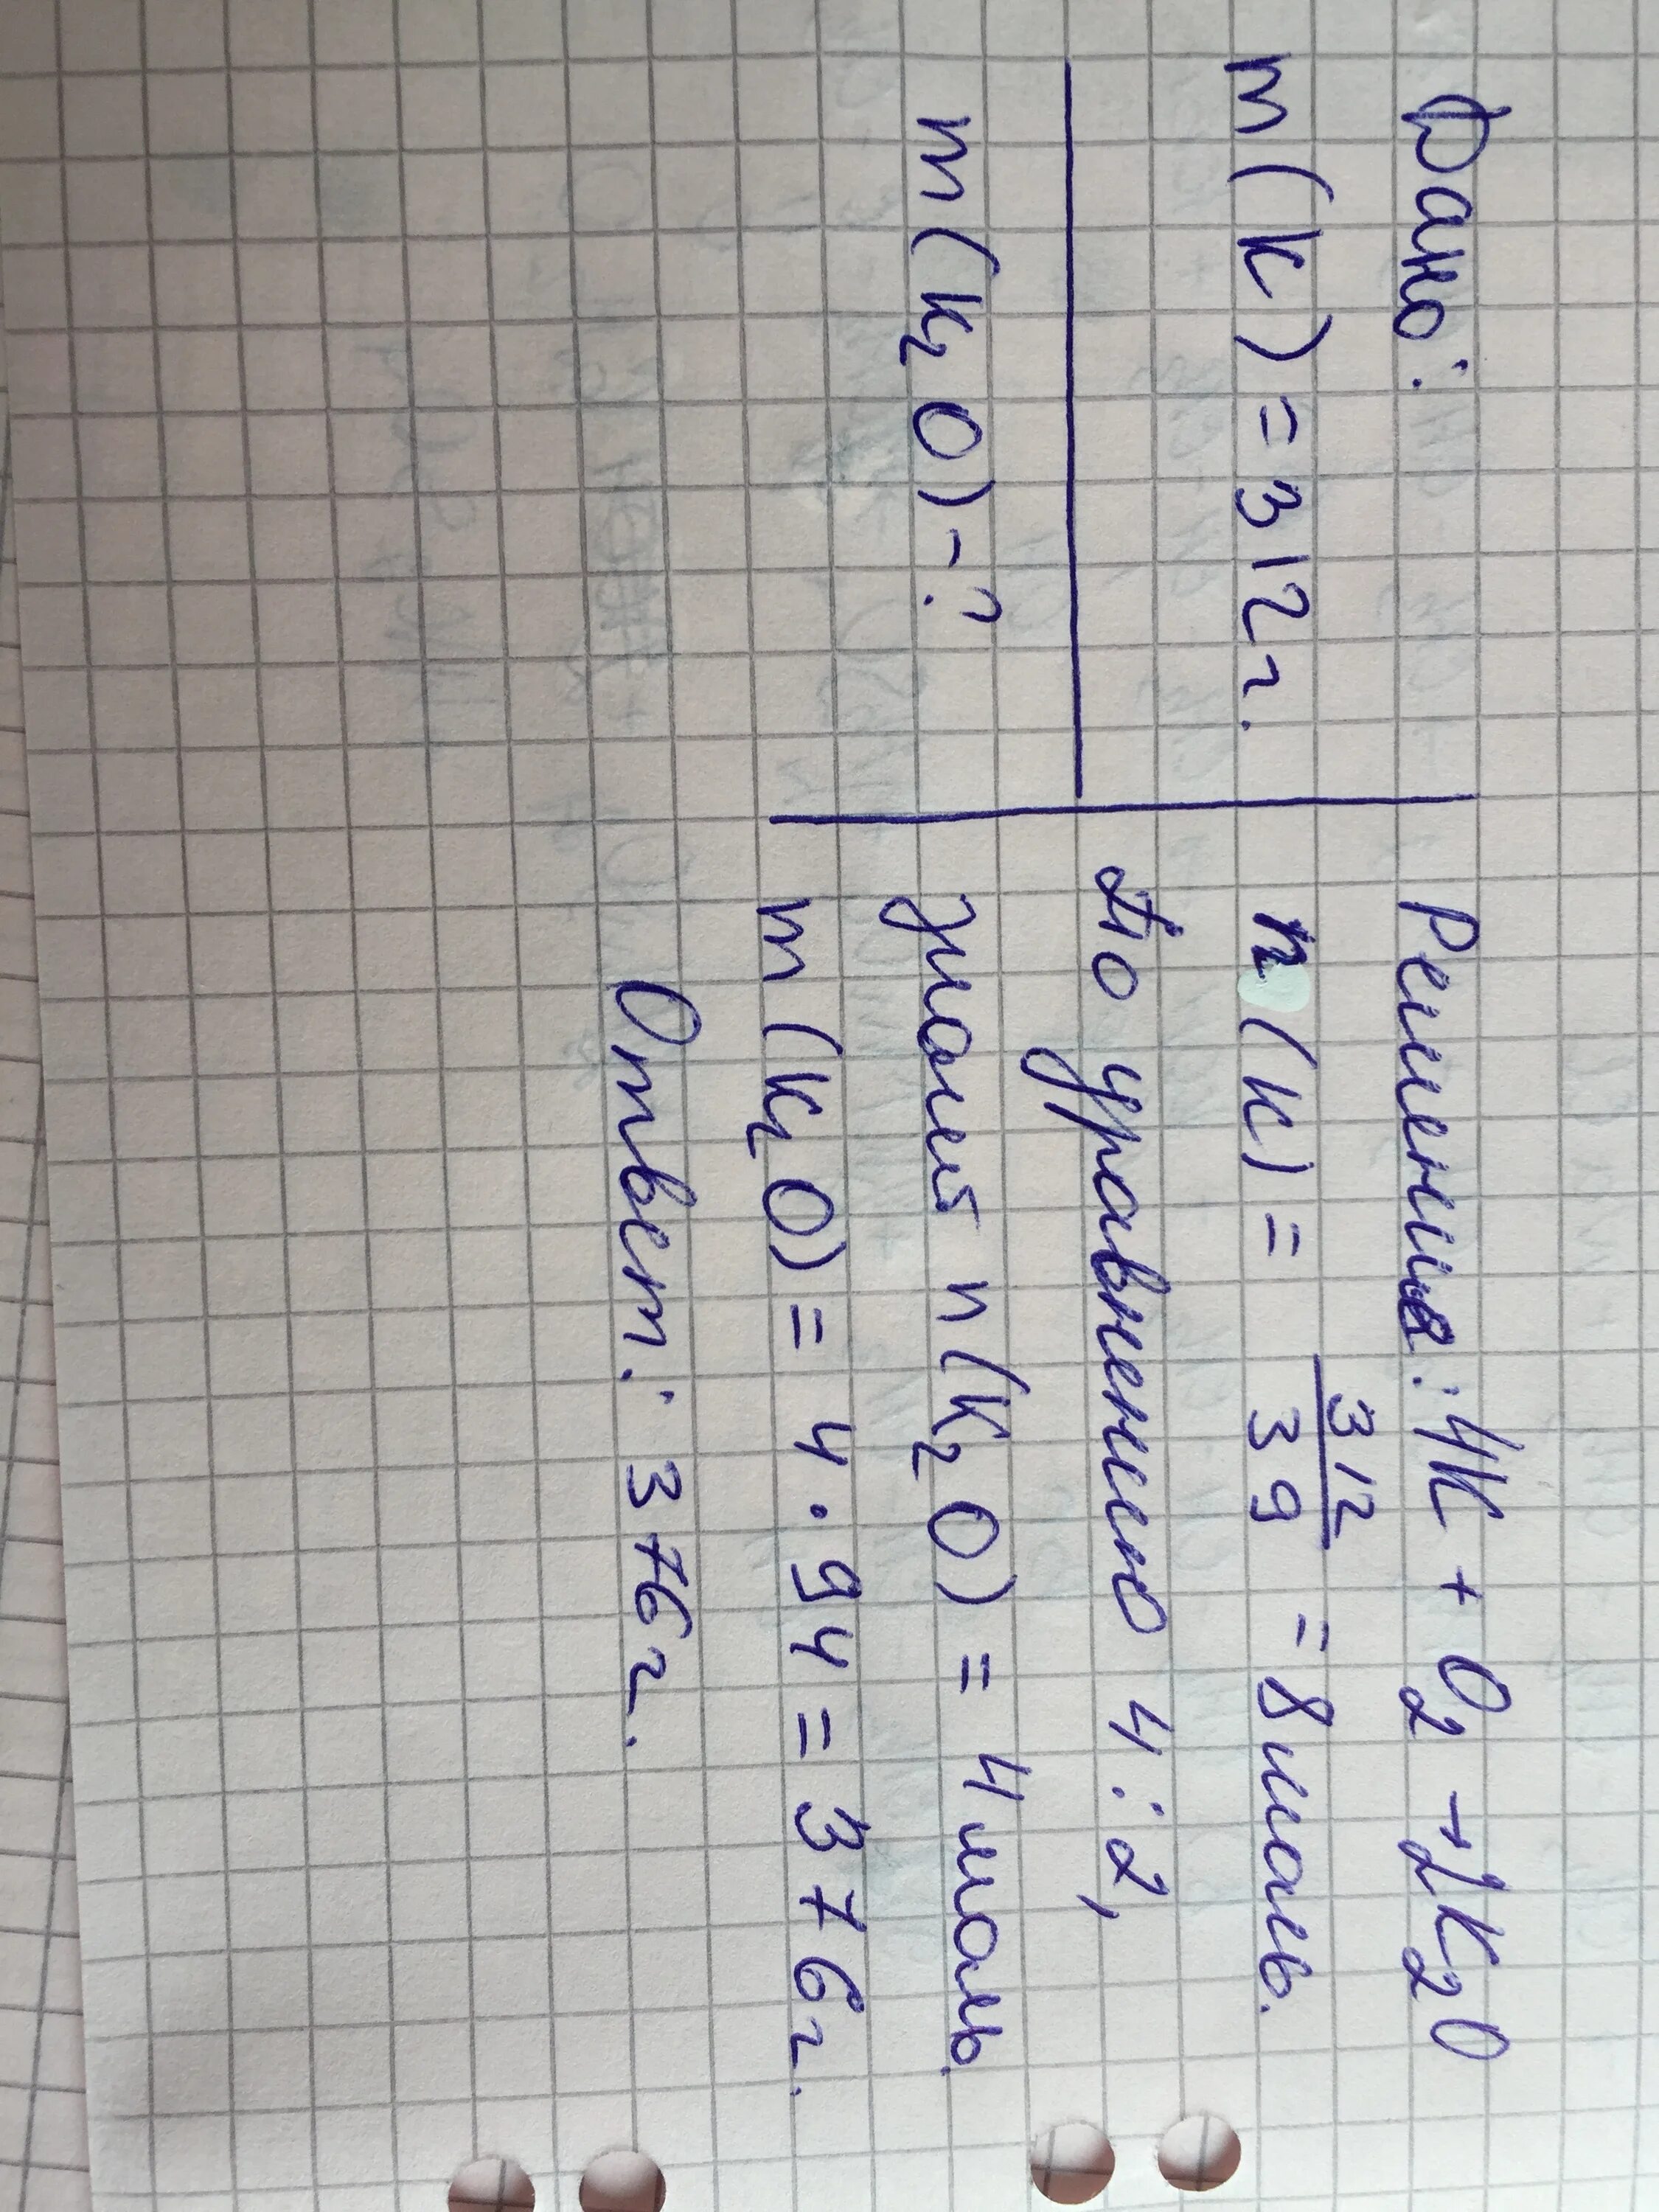 Дано:
m(K)=312г.
m(K₂O)-?
Решение: 4K + O₂ → 2K₂O
n(K) = 312/39 = 8 моль.
По уравнению 4:2,
знаем n(K₂O) = 4 моль.
m(K₂O) = 4·94 = 376г.
Ответ: 376г.